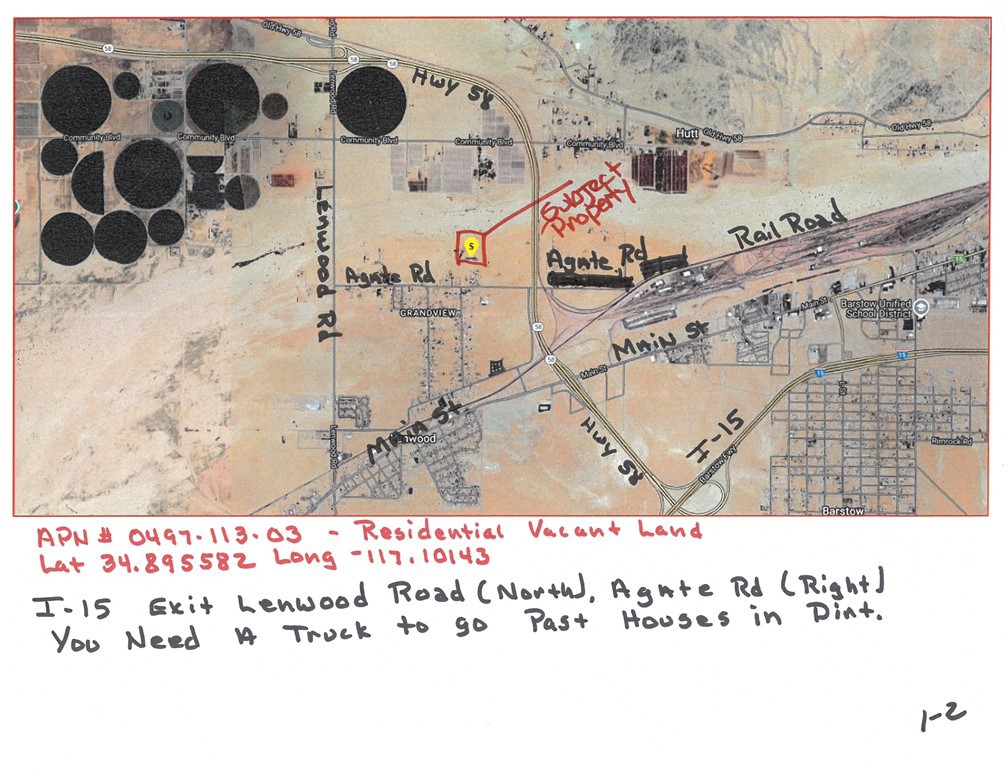 Old Hwy 58
58
58
58
HWY 58
Lenwood Rd
Community Blvd
Community Blvd
Community Blvd
Community Blvd
Community Blvd
Hutt
Old Hwy 58
Old Hwy 58
Subject
Property
S
Lenwood Rd
Rail Road
Agate Rd
Agate Rd
GRANDVIEW
15
Main St
Barstow Unified
School District
58
MAIN St
58
Main St
15
15
L St
Main St
nwood
HWY 58
I-15
Barstow Fwy
Lenwood Rd
Rimrock Rd
Barstow
APN # 0497-113-03 - Residential Vacant Land
Lat 34.895582 Long -117.10143
I-15 Exit Lenwood Road (North), Agate Rd (Right)
You Need A Truck to go Past Houses in Dirt.
1-2